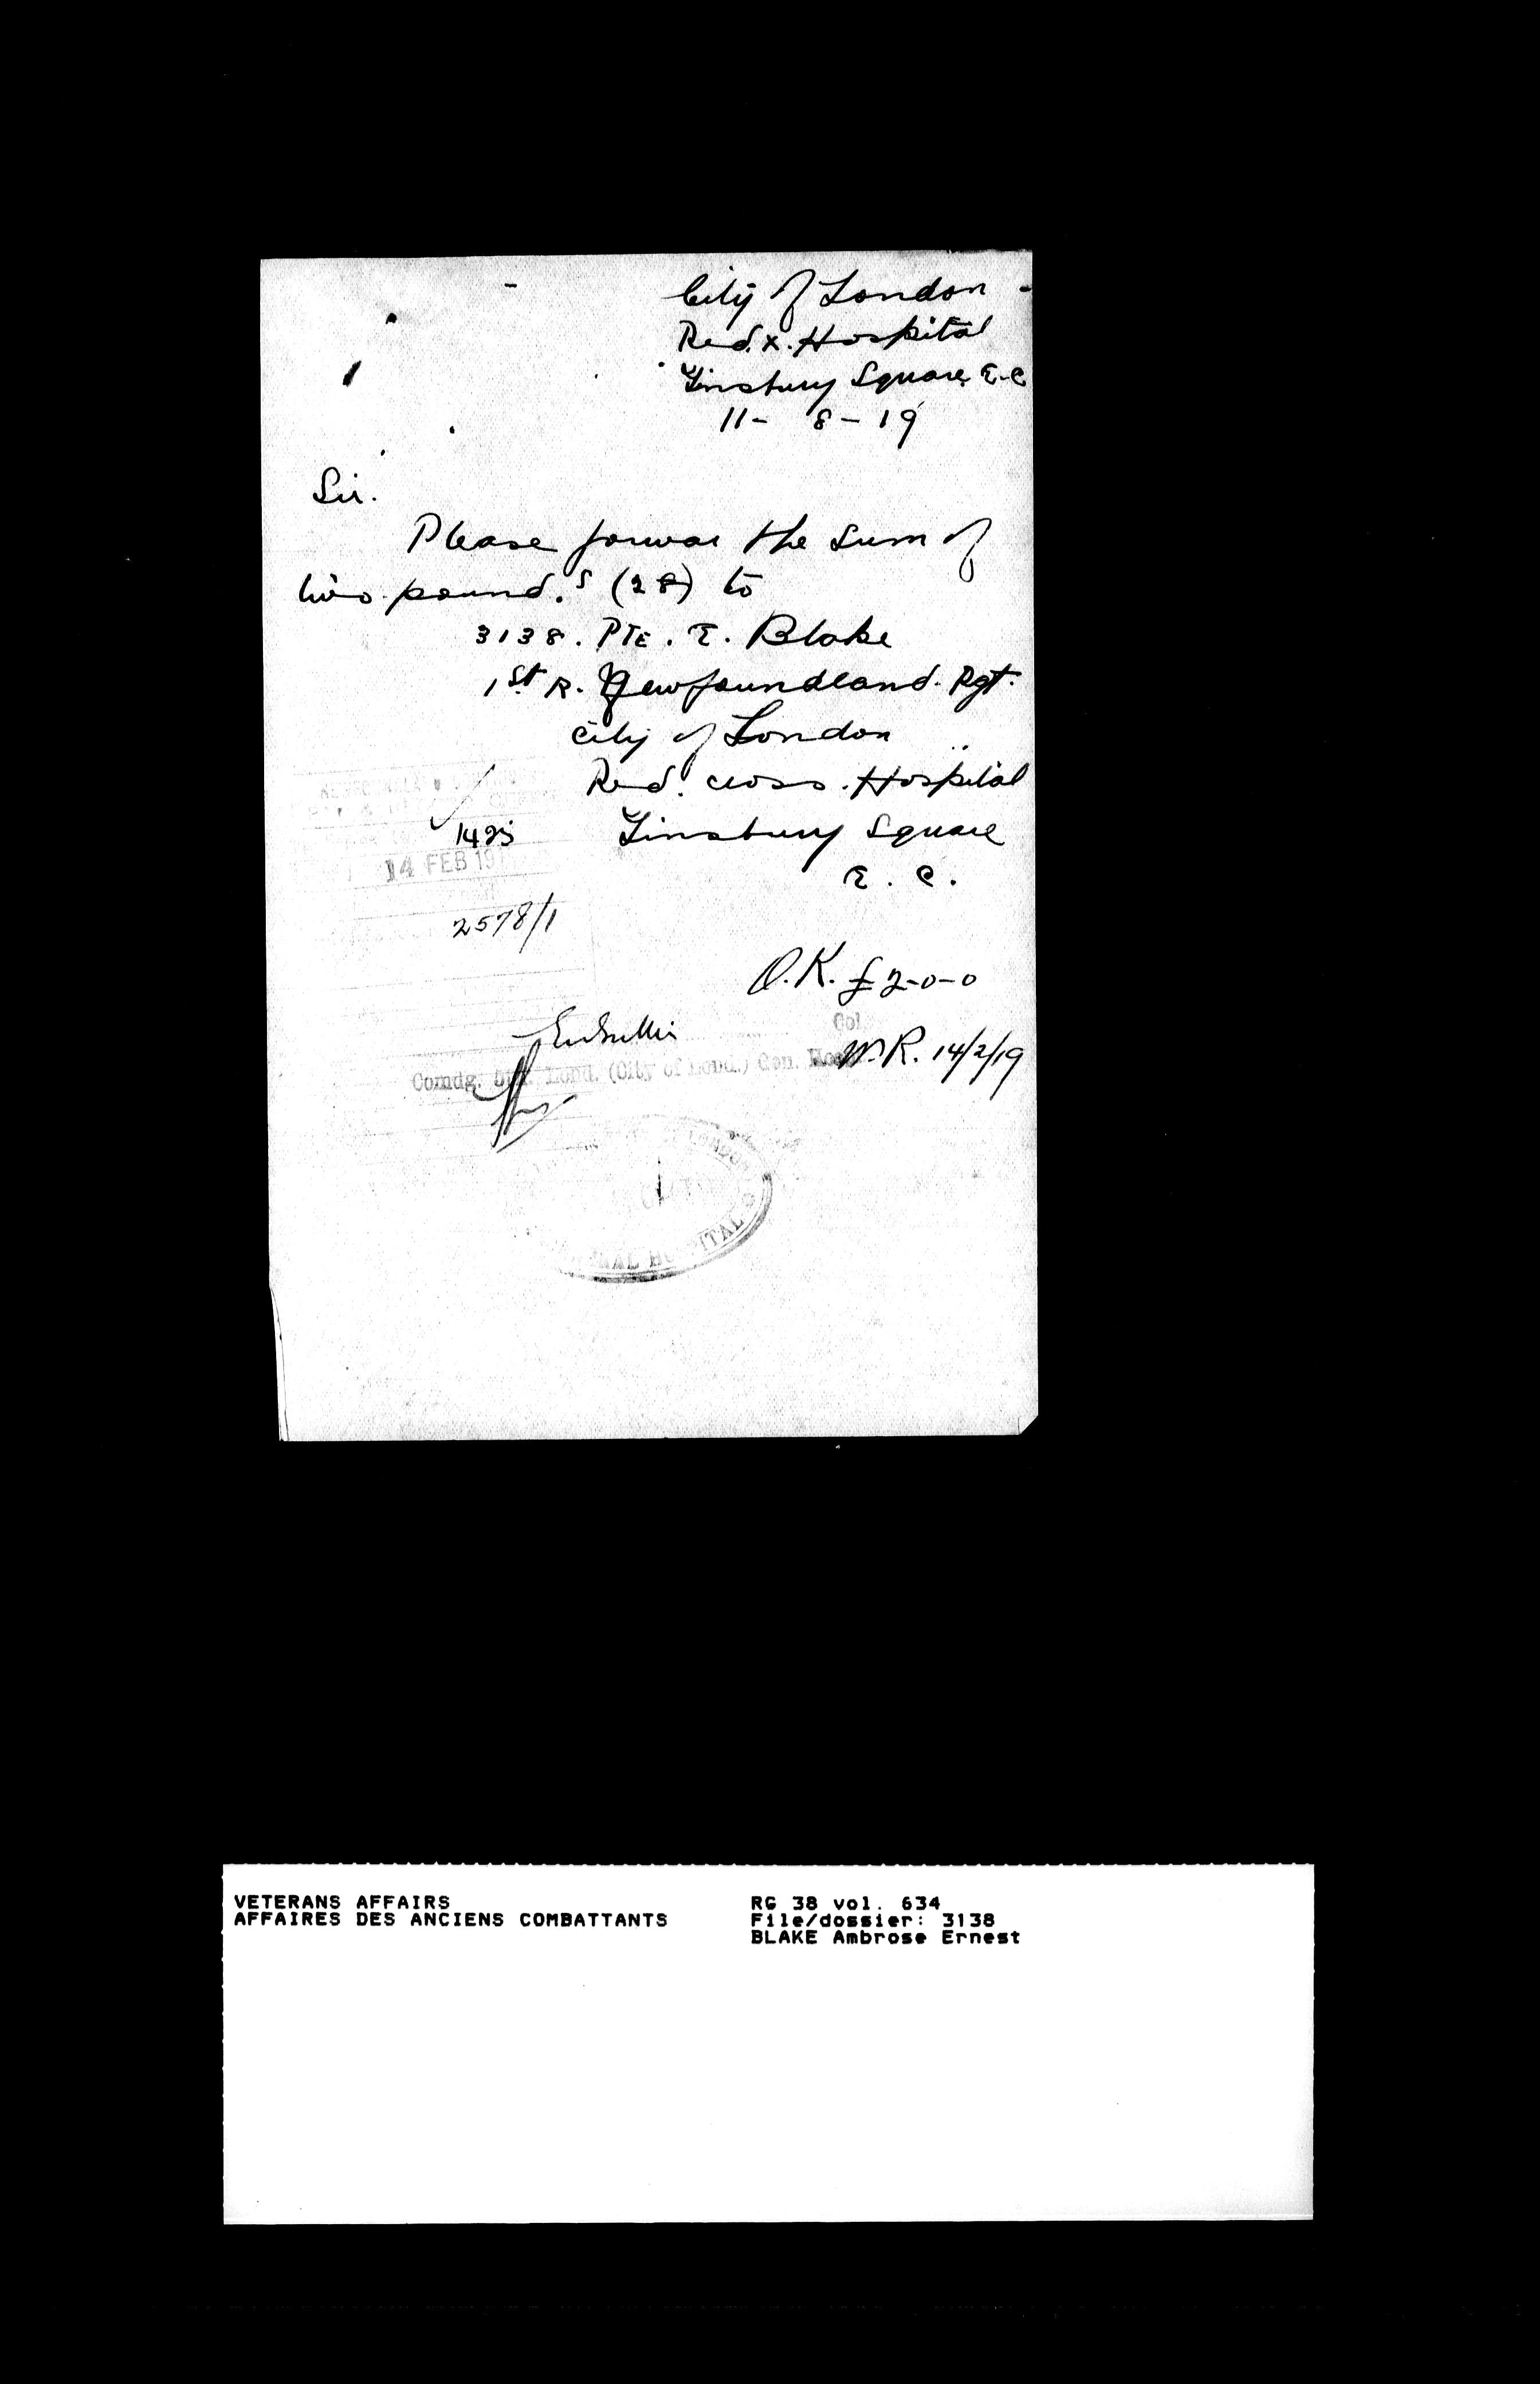 City of London
Red. x. Hospital
Finsbury Square E-C
11- 8-19
Sir.
Please forwar the sum of
two pound.s (2£) to
3138. PTE. E. Blake
1st R. Newfoundland. Rgt.
City of London
Red. cross. Hospital
1425 Finsbury Square
14 FEB 19
E. C.
2578/1
O.K. £2-0-0
Col.
W.R. 14/2/19
Comdg. Lond. (City of Lond.) Gen. Hosp.
LONDON
HOSPITAL
VETERANS AFFAIRS
AFFAIRES DES ANCIENS COMBATTANTS
RG 38 vol. 634
File/dossier: 3138
BLAKE Ambrose Ernest